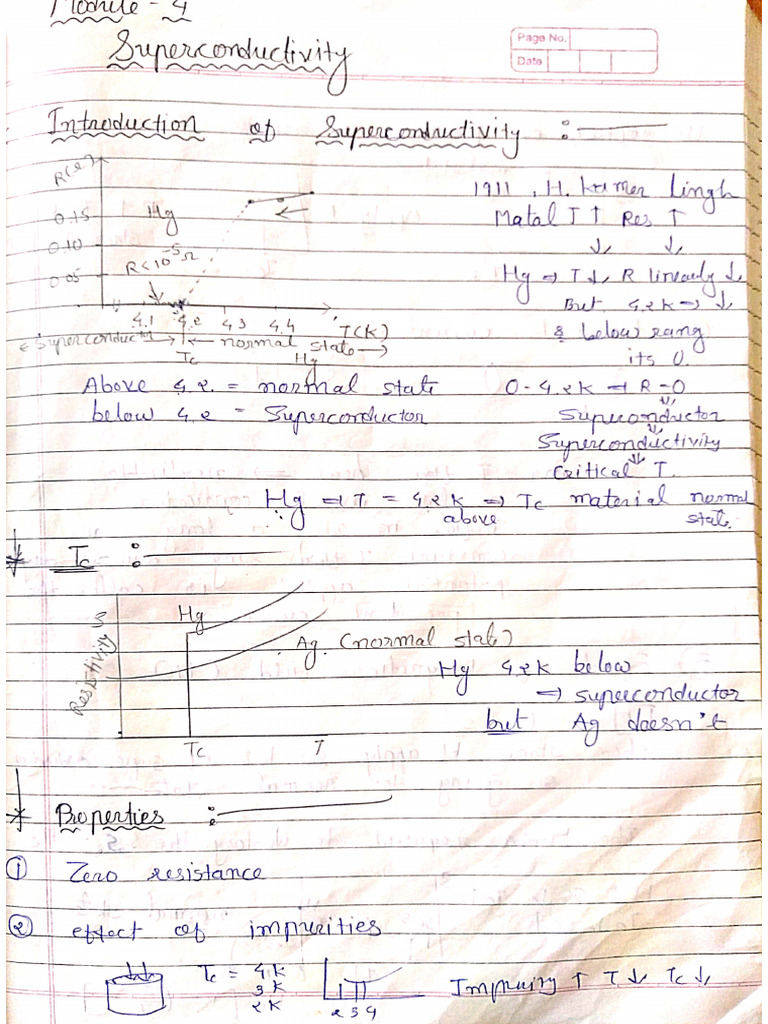 Module - 4
Superconductivity
Page No.
Date
Introduction of Superconductivity :
R(Ω)
0.15
0.10
0.05
Hg
R<10⁻⁵Ω
4.1 4.2 4.3 4.4 T(K)
← Superconductor → ← normal state →
Tc Hg
1911, H. Kamer lingh
Matal T↑ Res ↑
↓ ↓
Hg ⇒ T↓, R linearly ↓
But 4.2K → ↓
& below rang
its 0.
Above 4.2 = normal state 0-4.2K ⇒ R=0
below 4.2 = Superconductor
Superconductor
↓
Superconductivity
↓
Critical T.
Hg ⇒ T = 4.2K ⇒ Tc material normal
above state.
* Tc :
Resistivity S
Hg
Ag. (normal state)
Tc T
Hg 4.2K below
⇒ superconductor
but Ag doesn't
* Properties :
① Zero resistance
② effect of impurities
Tc = 4K
3K
2K
2 3 4
Impruiry ↑ T↓ Tc↓